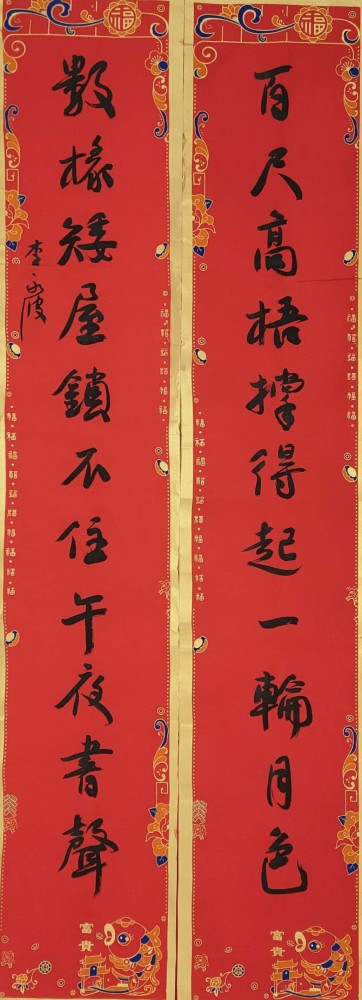 百尺高梧撑得起一輪月色
數椽矮屋鎖不住午夜書聲
福
福
富貴
富貴